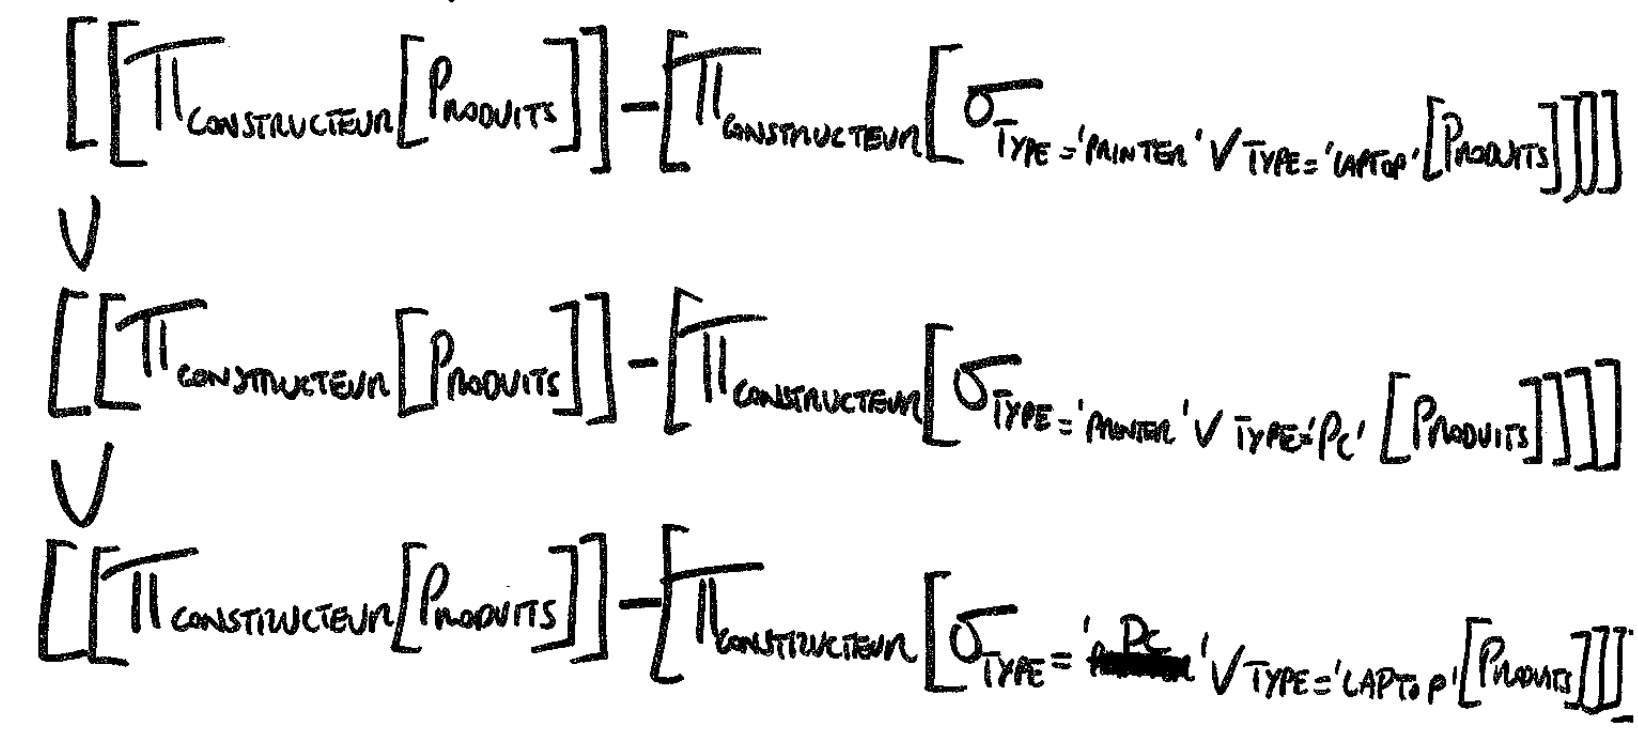 [[π CONSTRUCTEUR [PRODUITS]] − [π CONSTRUCTEUR [σ TYPE='PRINTER' ∨ TYPE='LAPTOP' [PRODUITS]]]]
∪
[[π CONSTRUCTEUR [PRODUITS]] − [π CONSTRUCTEUR [σ TYPE='PRINTER' ∨ TYPE='PC' [PRODUITS]]]]
∪
[[π CONSTRUCTEUR [PRODUITS]] − [π CONSTRUCTEUR [σ TYPE='PC' ∨ TYPE='LAPTOP' [PRODUITS]]]]